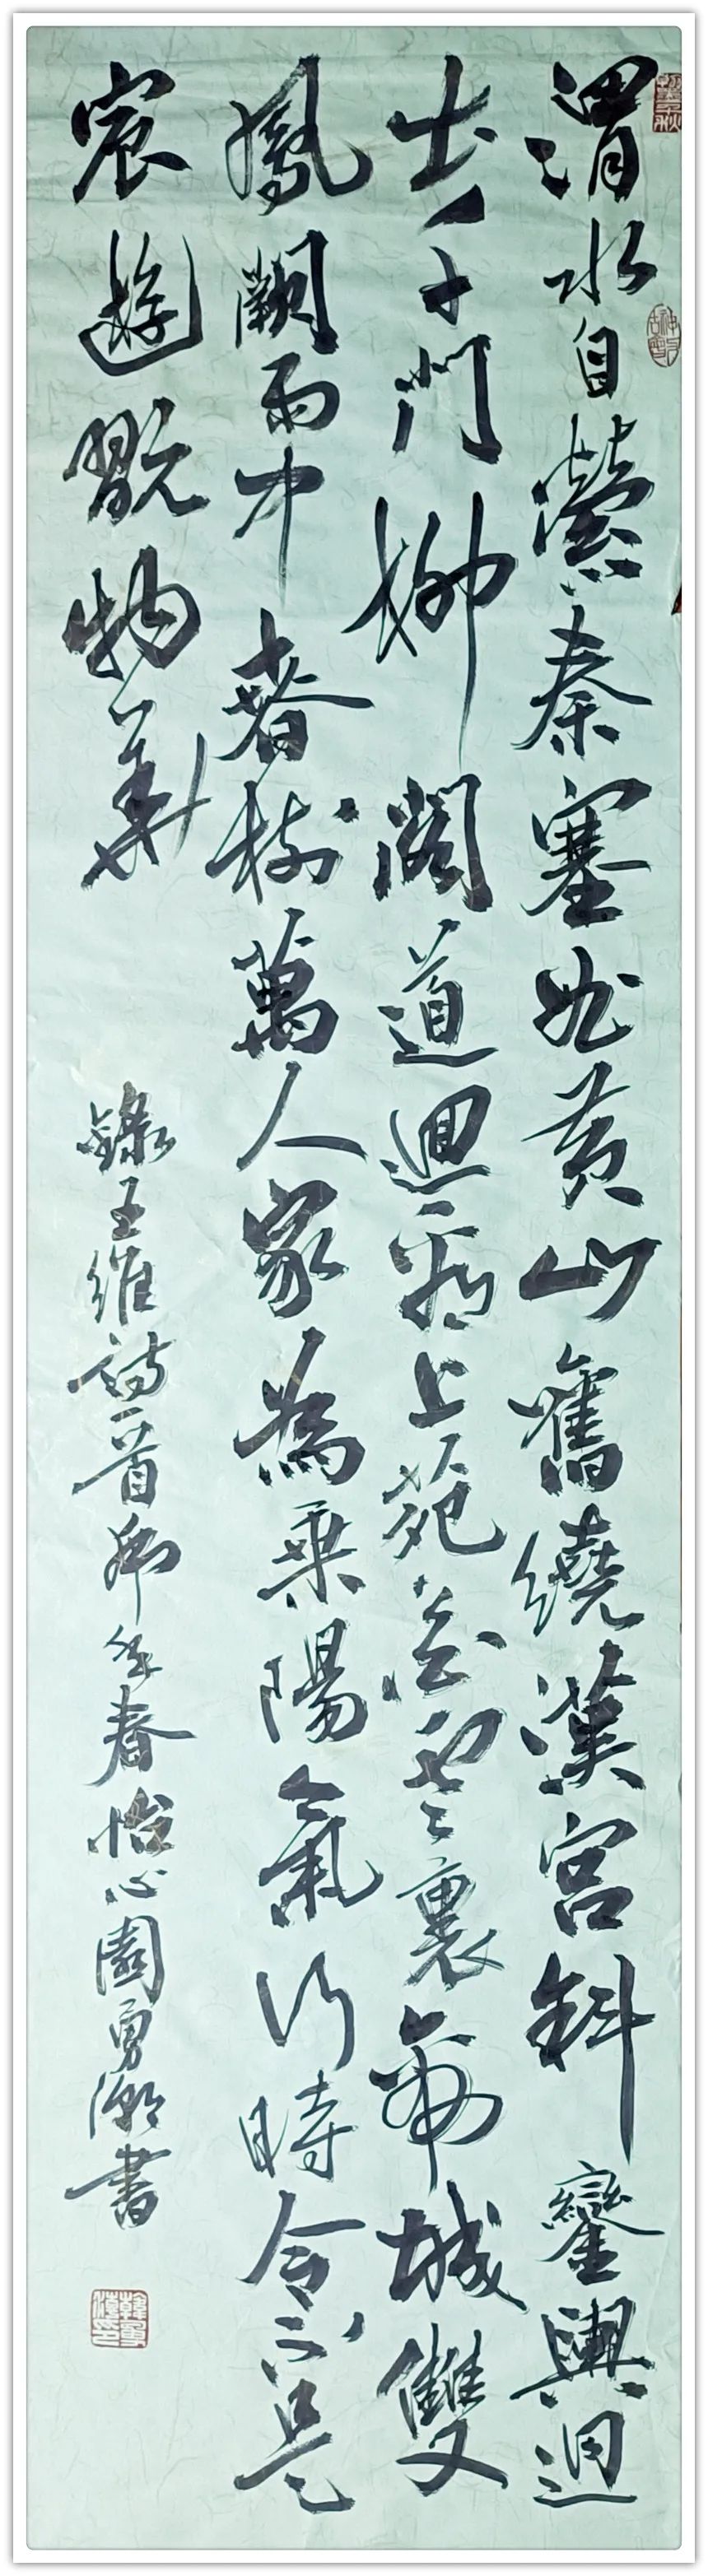 渭水自縈秦塞曲黃山舊繞漢宮斜鑾輿迥
出千門柳閣道迴看上苑花雲裏帝城雙
鳳闕雨中春樹萬人家為乘陽氣行時令不是
宸遊翫物華
錄王維詩一首 年春怡心園勇潮書